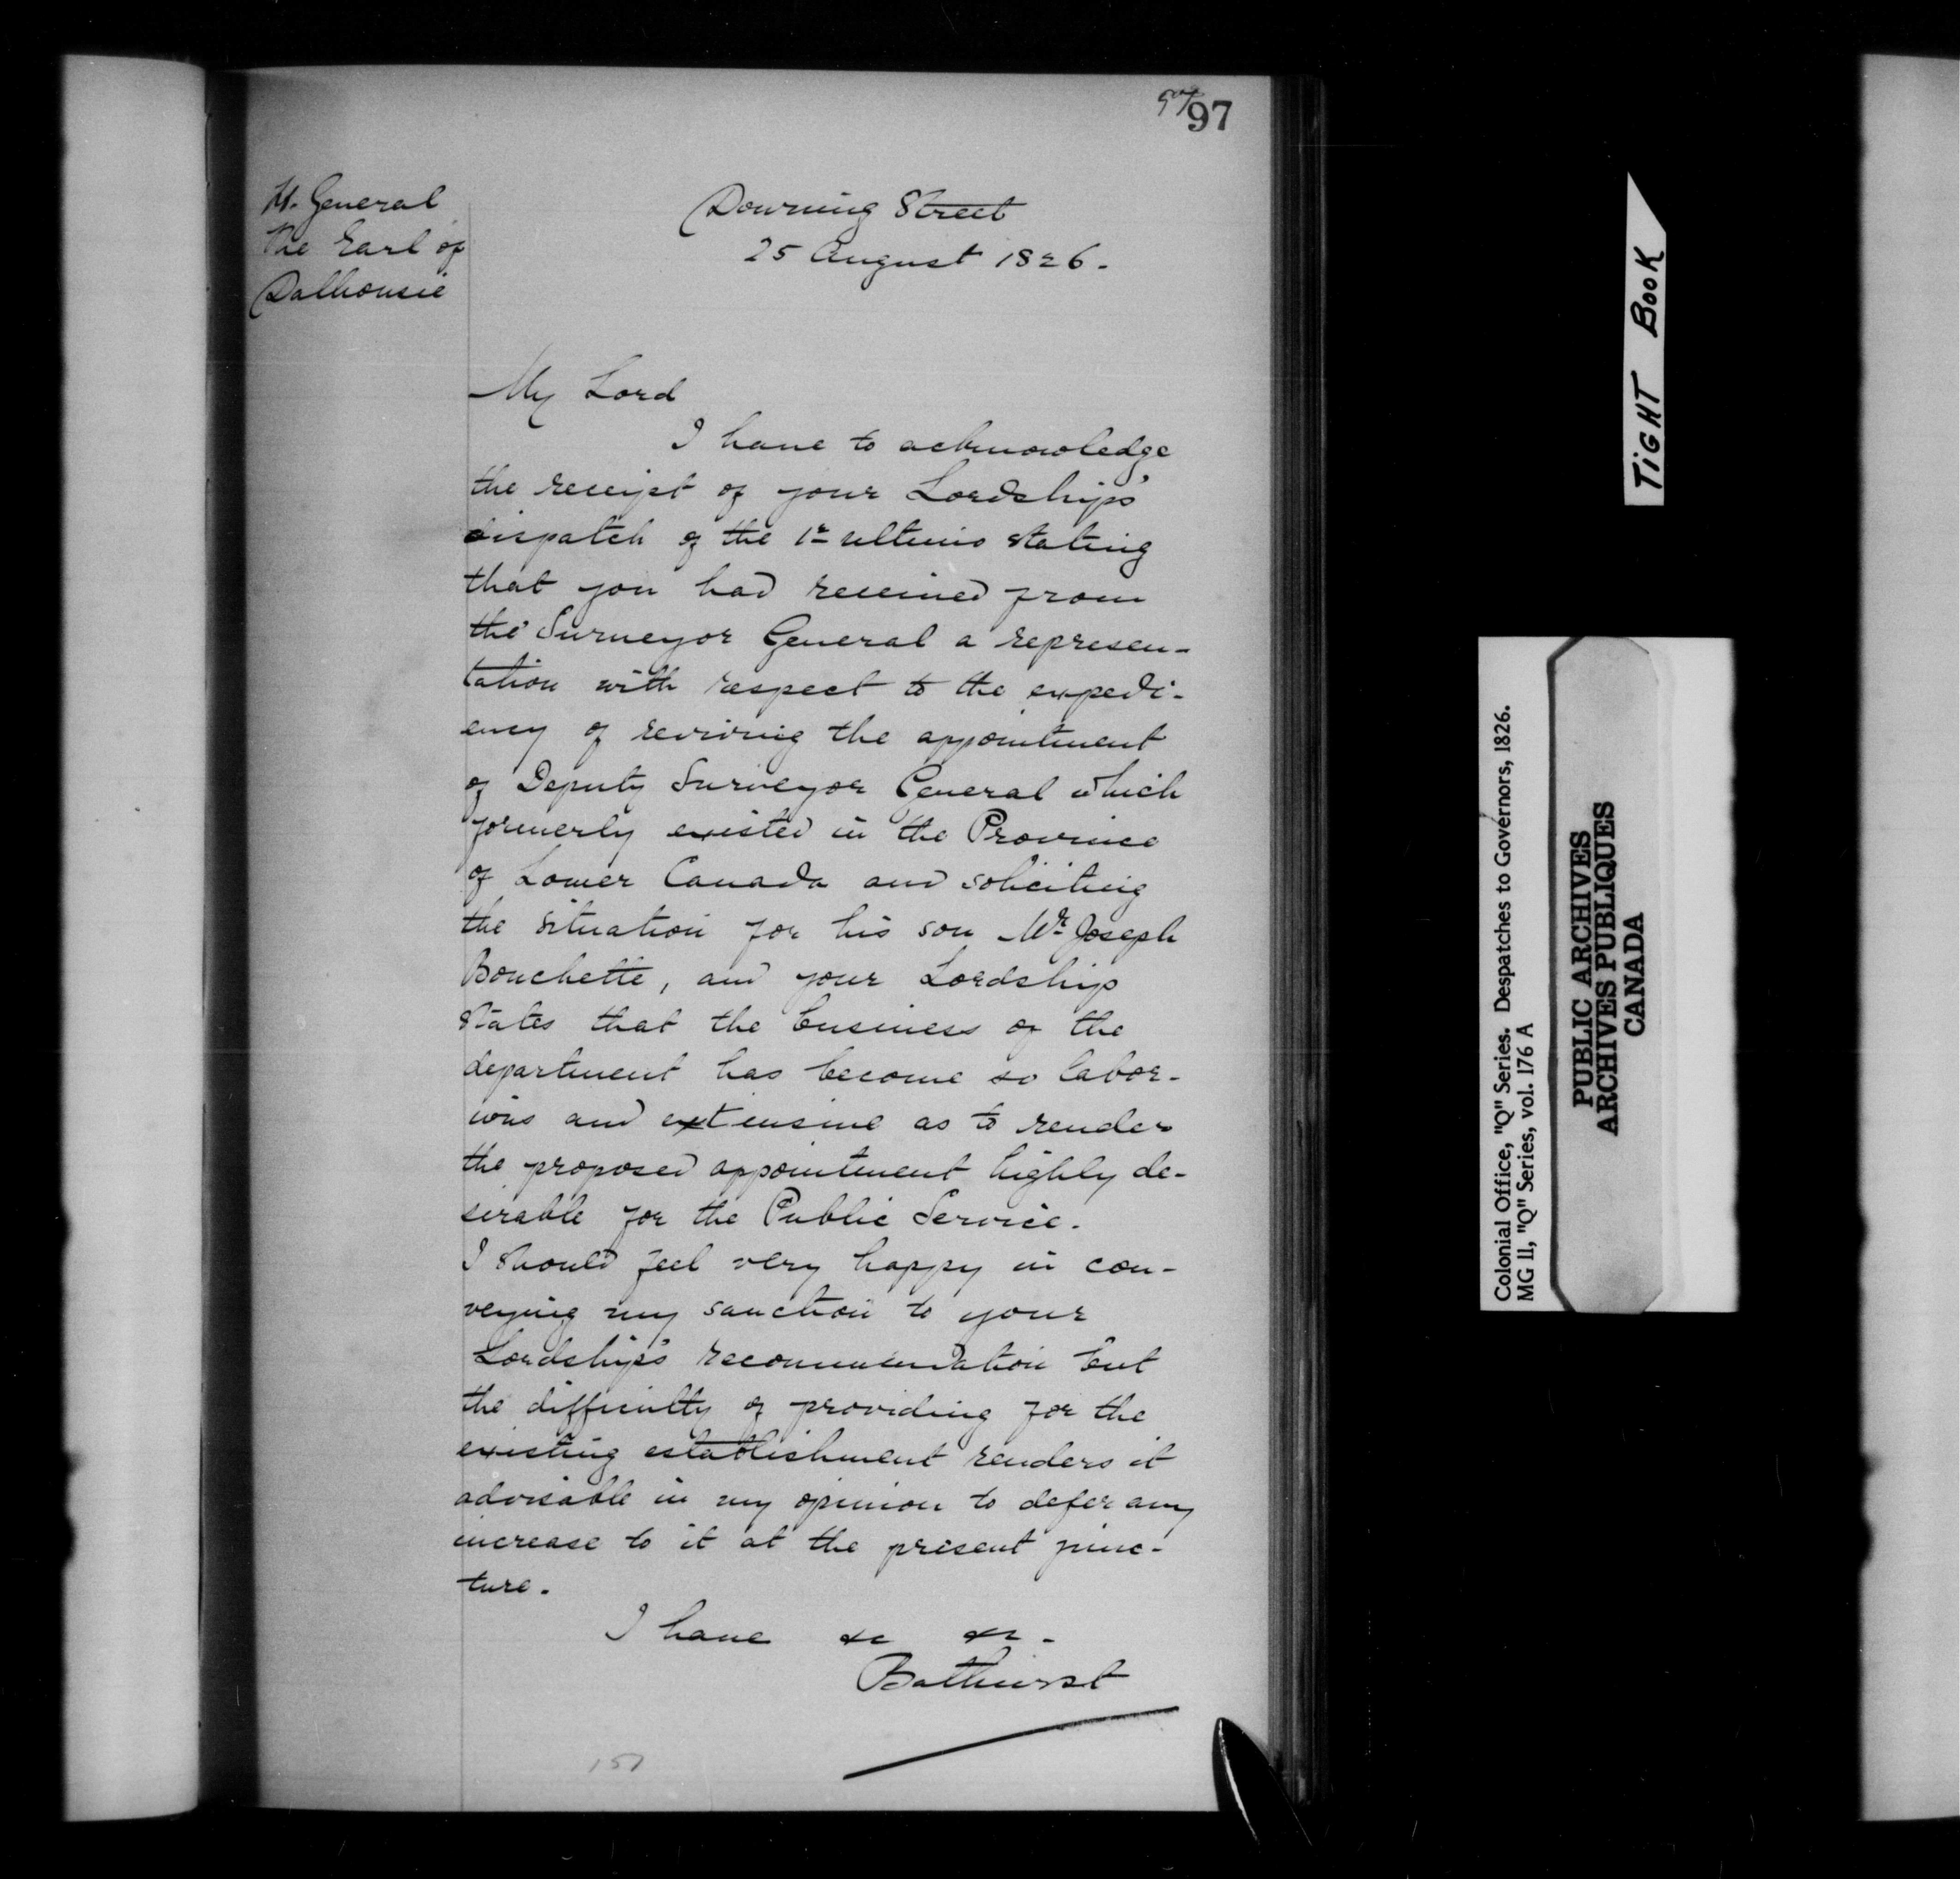 97
Lt. General
the Earl of
Dalhousie
Downing Street
25 August 1826.
My Lord
I have to acknowledge
the receipt of your Lordships'
dispatch of the 1r ultimo stating
that you had received from
the Surveyor General a represen-
tation with respect to the expedi-
ency of reviving the appointment
of Deputy Surveyor General which
formerly existed in the Province
of Lower Canada and soliciting
the situation for his son Mr Joseph
Bouchette, and your Lordship
states that the business of the
department has become so labor-
ious and extensive as to render
the proposed appointment highly de-
sirable for the Public Service.
I should feel very happy in con-
veying my sanction to your
Lordship's recommendation but
the difficulty of providing for the
existing establishment renders it
advisable in my opinion to defer any
increase to it at the present junc-
ture.
I have &c &c.
Bathurst
151
TIGHT BOOK
Colonial Office, "Q" Series. Despatches to Governors, 1826.
MG 11, "Q" Series, vol. 176 A
PUBLIC ARCHIVES
ARCHIVES PUBLIQUES
CANADA